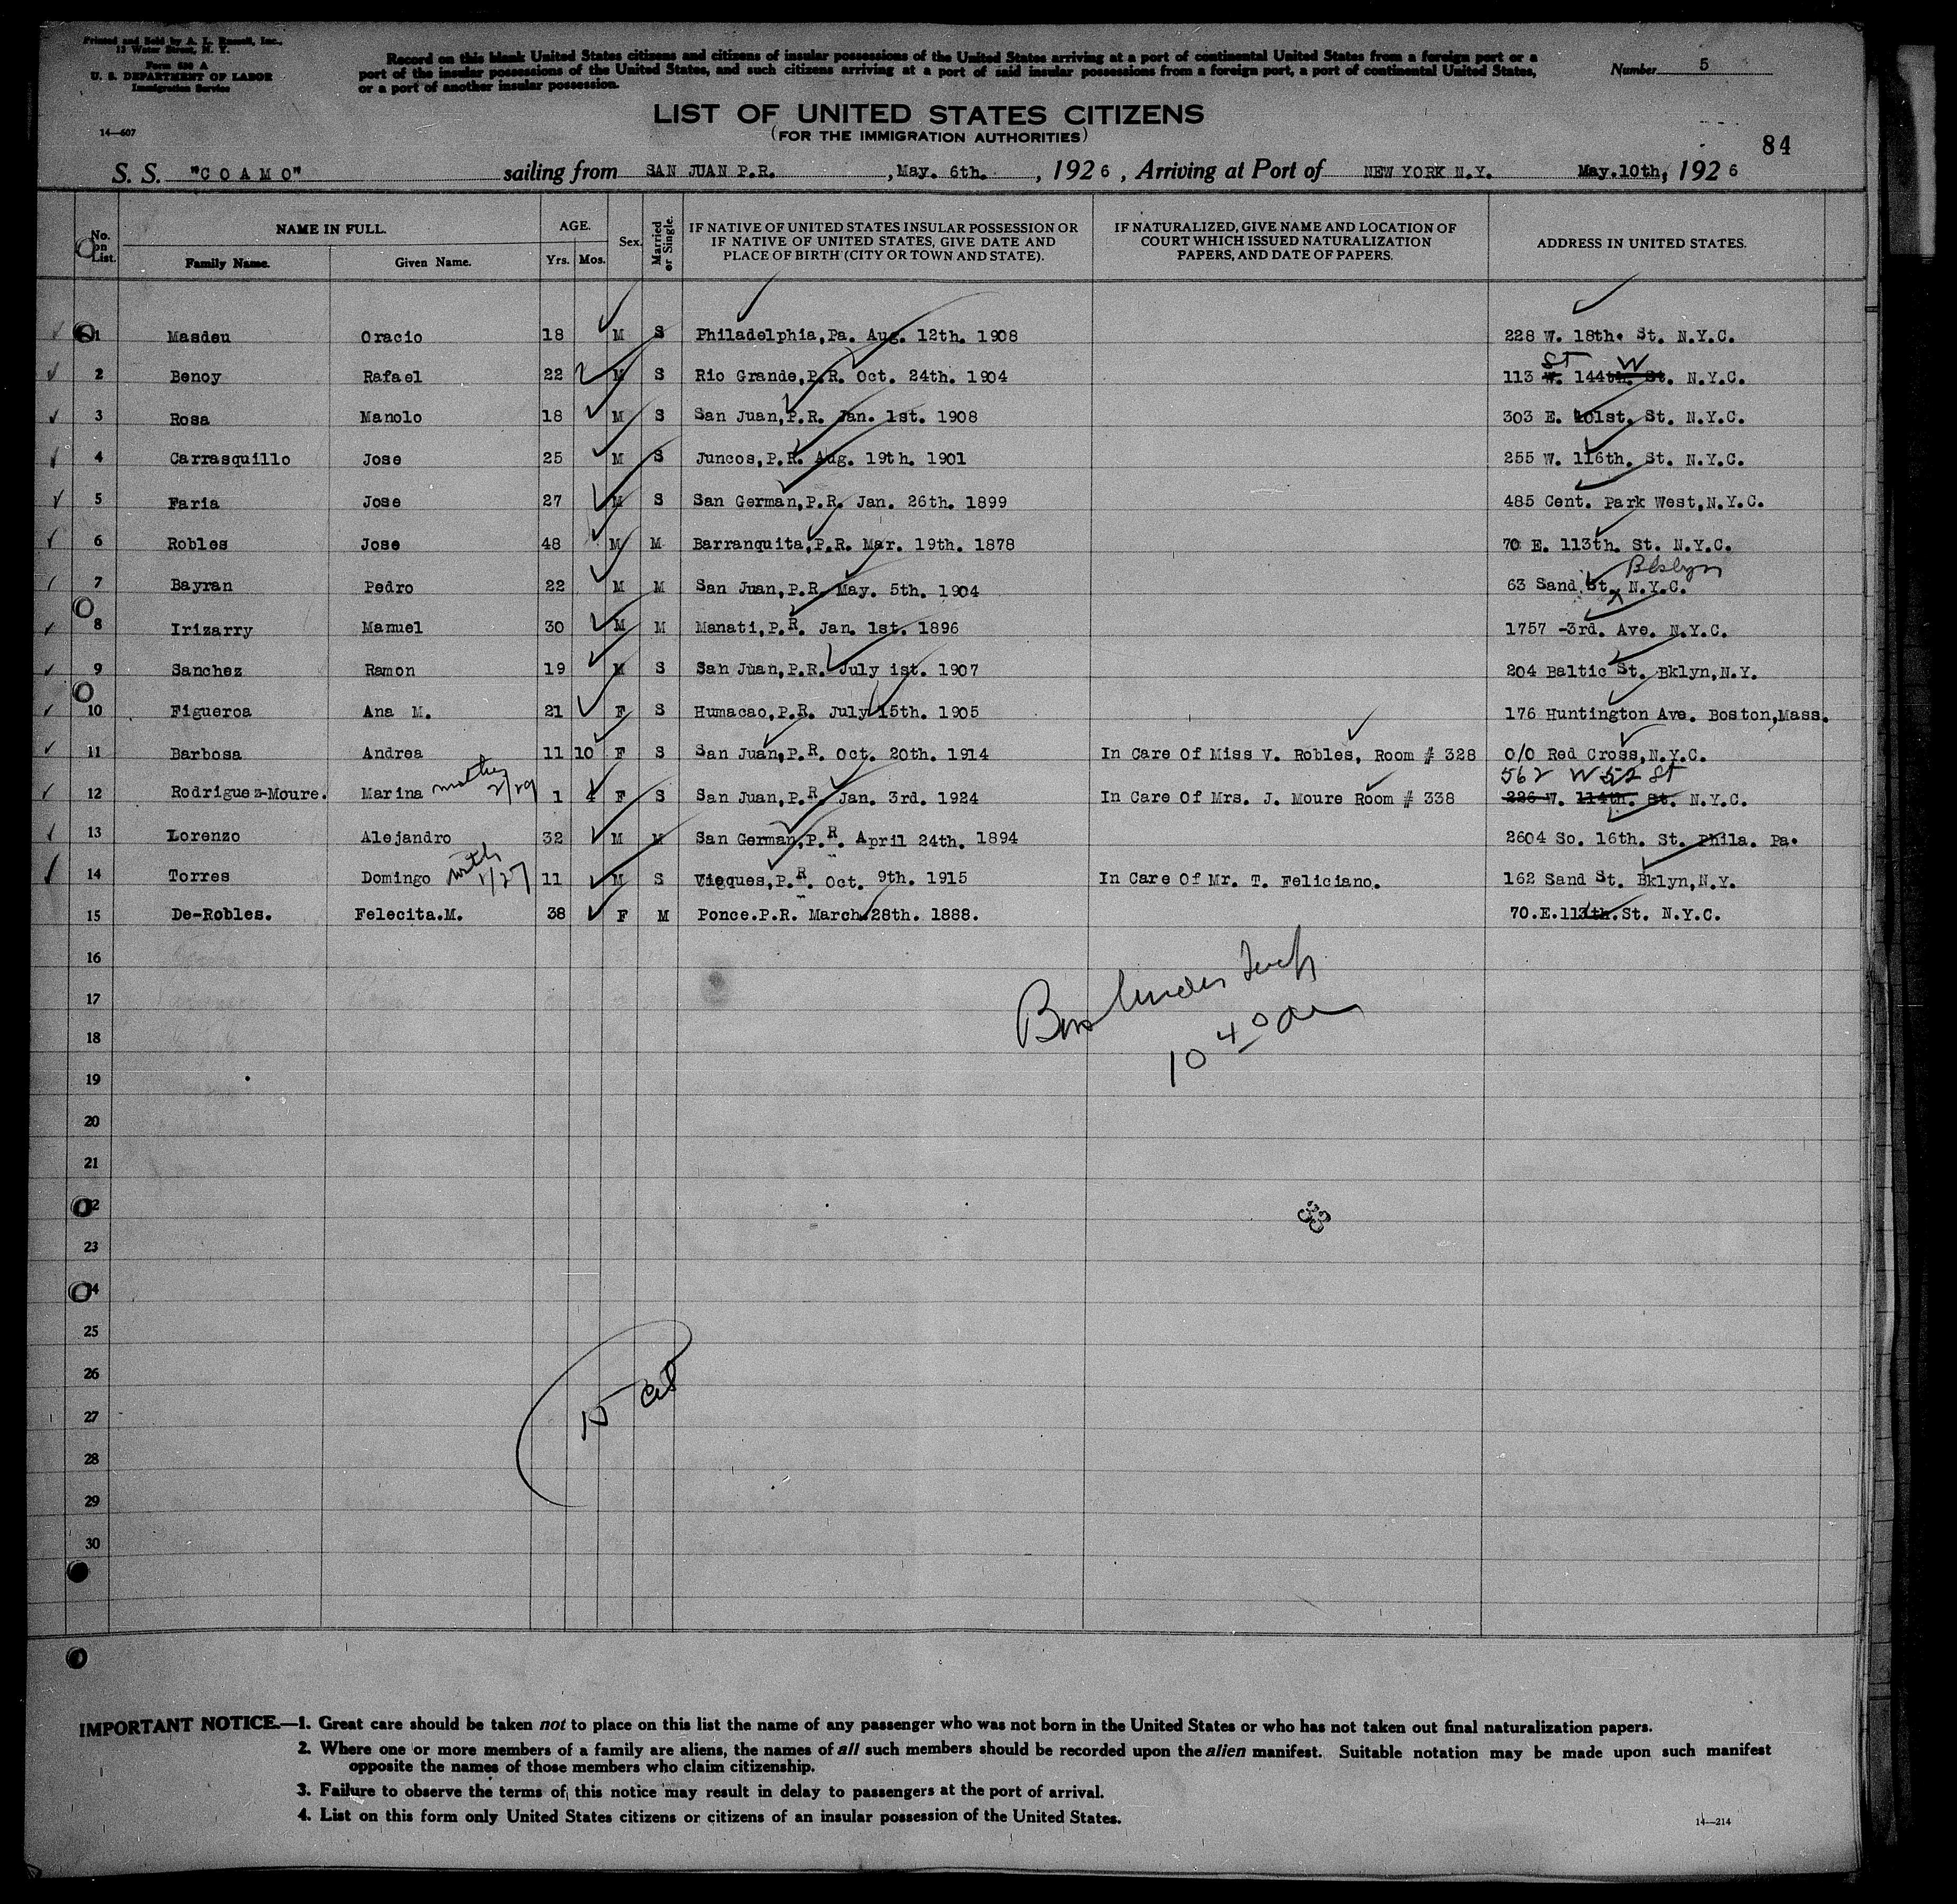 Printed and Sold by A. L. Russell, Inc.,
13 Water Street, N. Y.
Form 630 A
U. S. DEPARTMENT OF LABOR
Immigration Service
14—607
Record on this blank United States citizens and citizens of insular possessions of the United States arriving at a port of continental United States from a foreign port or a
port of the insular possessions of the United States, and such citizens arriving at a port of said insular possessions from a foreign port, a port of continental United States,
or a port of another insular possession.
Number 5
LIST OF UNITED STATES CITIZENS
(FOR THE IMMIGRATION AUTHORITIES)
84
S. S. "COAMO" sailing from SAN JUAN P.R. , May. 6th. , 1926 , Arriving at Port of NEW YORK N.Y. May.10th, 1926
No. on List. NAME IN FULL. Family Name. Given Name. AGE. Yrs. Mos. Sex. Married or Single. IF NATIVE OF UNITED STATES INSULAR POSSESSION OR IF NATIVE OF UNITED STATES, GIVE DATE AND PLACE OF BIRTH (CITY OR TOWN AND STATE). IF NATURALIZED, GIVE NAME AND LOCATION OF COURT WHICH ISSUED NATURALIZATION PAPERS, AND DATE OF PAPERS. ADDRESS IN UNITED STATES.
1 Masdeu Oracio 18 M S Philadelphia,Pa. Aug. 12th. 1908 228 W. 18th. St. N.Y.C.
ST W
2 Benoy Rafael 22 M S Rio Grande,P.R. Oct. 24th. 1904 113 W. 144th. St. N.Y.C.
3 Rosa Manolo 18 M S San Juan,P.R. Jan. 1st. 1908 303 E. 101st. St. N.Y.C.
4 Carrasquillo Jose 25 M S Juncos,P.R. Aug. 19th. 1901 255 W. 116th. St. N.Y.C.
5 Faria Jose 27 M S San German,P.R. Jan. 26th. 1899 485 Cent. Park West,N.Y.C.
6 Robles Jose 48 M M Barranquita,P.R. Mar. 19th. 1878 70 E. 113th. St. N.Y.C.
Bklyn
7 Bayran Pedro 22 M M San Juan,P.R. May. 5th. 1904 63 Sand St. N.Y.C.
8 Irizarry Manuel 30 M M Manati,P.R. Jan. 1st. 1896 1757 -3rd. Ave. N.Y.C.
9 Sanchez Ramon 19 M S San Juan,P.R. July 1st. 1907 204 Baltic St. Bklyn,N.Y.
10 Figueroa Ana M. 21 F S Humacao,P.R. July 15th. 1905 176 Huntington Ave. Boston,Mass.
11 Barbosa Andrea 11 10 F S San Juan,P.R. Oct. 20th. 1914 In Care Of Miss V. Robles, Room # 328 0/0 Red Cross,N.Y.C.
562 W 52 St
12 Rodriguez-Moure. Marina mother 2/29 1 4 F S San Juan,P.R. Jan. 3rd. 1924 In Care Of Mrs. J. Moure Room # 338 226 W. 114th. St. N.Y.C.
13 Lorenzo Alejandro 32 M M San German,P.R. April 24th. 1894 2604 So. 16th. St. Phila. Pa.
14 Torres Domingo with 1/27 11 M S Vieques,P.R. Oct. 9th. 1915 In Care Of Mr. T. Feliciano. 162 Sand St. Bklyn,N.Y.
15 De-Robles. Felecita.M. 38 F M Ponce.P.R. March.28th. 1888. 70.E.113th.St. N.Y.C.
16
17
18
10 40 am
19
20
21
22
23
24
25
26
15
27
28
29
30
IMPORTANT NOTICE.—1. Great care should be taken not to place on this list the name of any passenger who was not born in the United States or who has not taken out final naturalization papers.
2. Where one or more members of a family are aliens, the names of all such members should be recorded upon the alien manifest. Suitable notation may be made upon such manifest
opposite the names of those members who claim citizenship.
3. Failure to observe the terms of this notice may result in delay to passengers at the port of arrival.
4. List on this form only United States citizens or citizens of an insular possession of the United States.
14—214